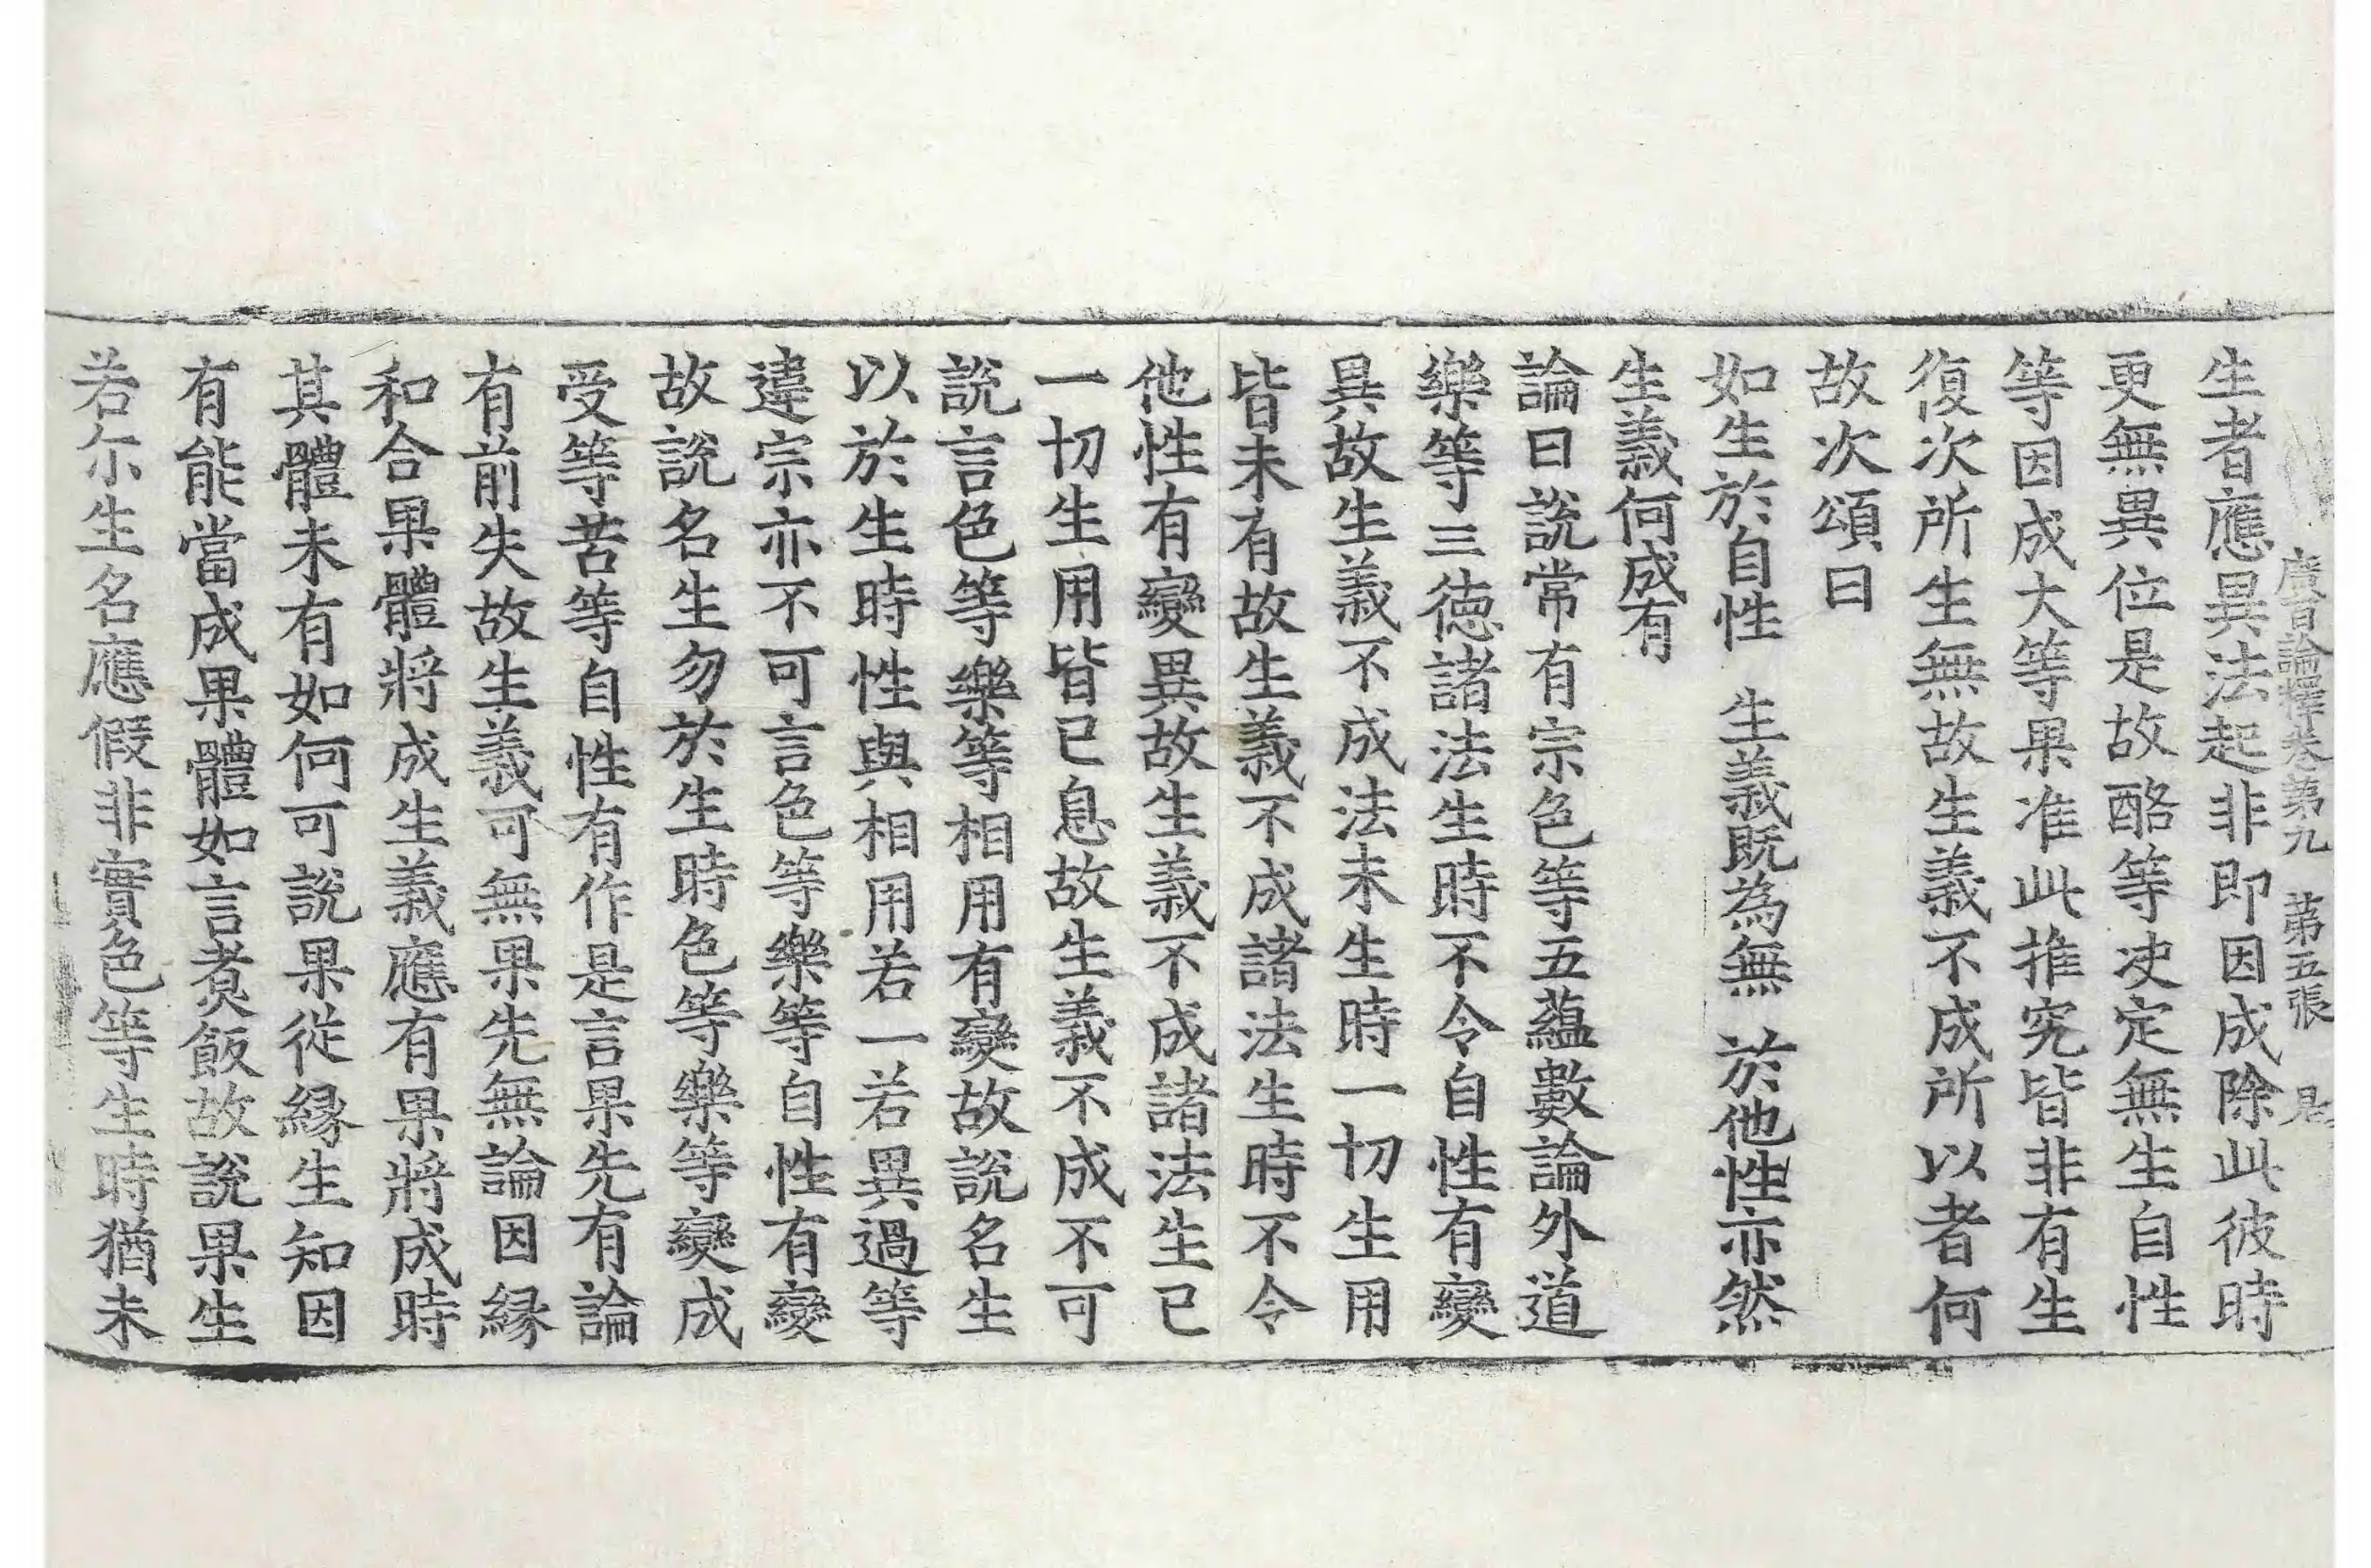 廣百論釋卷第九　第五張　是
生者應異法起非即因成除此彼時
更無異位是故酪等决定無生自性
等因成大等果准此推究皆非有生
復次所生無故生義不成所以者何
故次頌曰
如生於自性　生義既為無　於他性亦然
生義何成有
論曰說常有宗色等五蘊數論外道
樂等三德諸法生時不令自性有變
異故生義不成法未生時一切生用
皆未有故生義不成諸法生時不令
他性有變異故生義不成諸法生已
一切生用皆已息故生義不成不可
說言色等樂等相用有變故說名生
以於生時性與相用若一若異過等
違宗亦不可言色等樂等自性有變
故說名生勿於生時色等樂等變成
受等苦等自性有作是言果先有論
有前失故生義可無果先無論因緣
和合果體將成生義應有果將成時
其體未有如何可說果從緣生知因
有能當成果體如言煑飯故說果生
若尒生名應假非實色等生時猶未